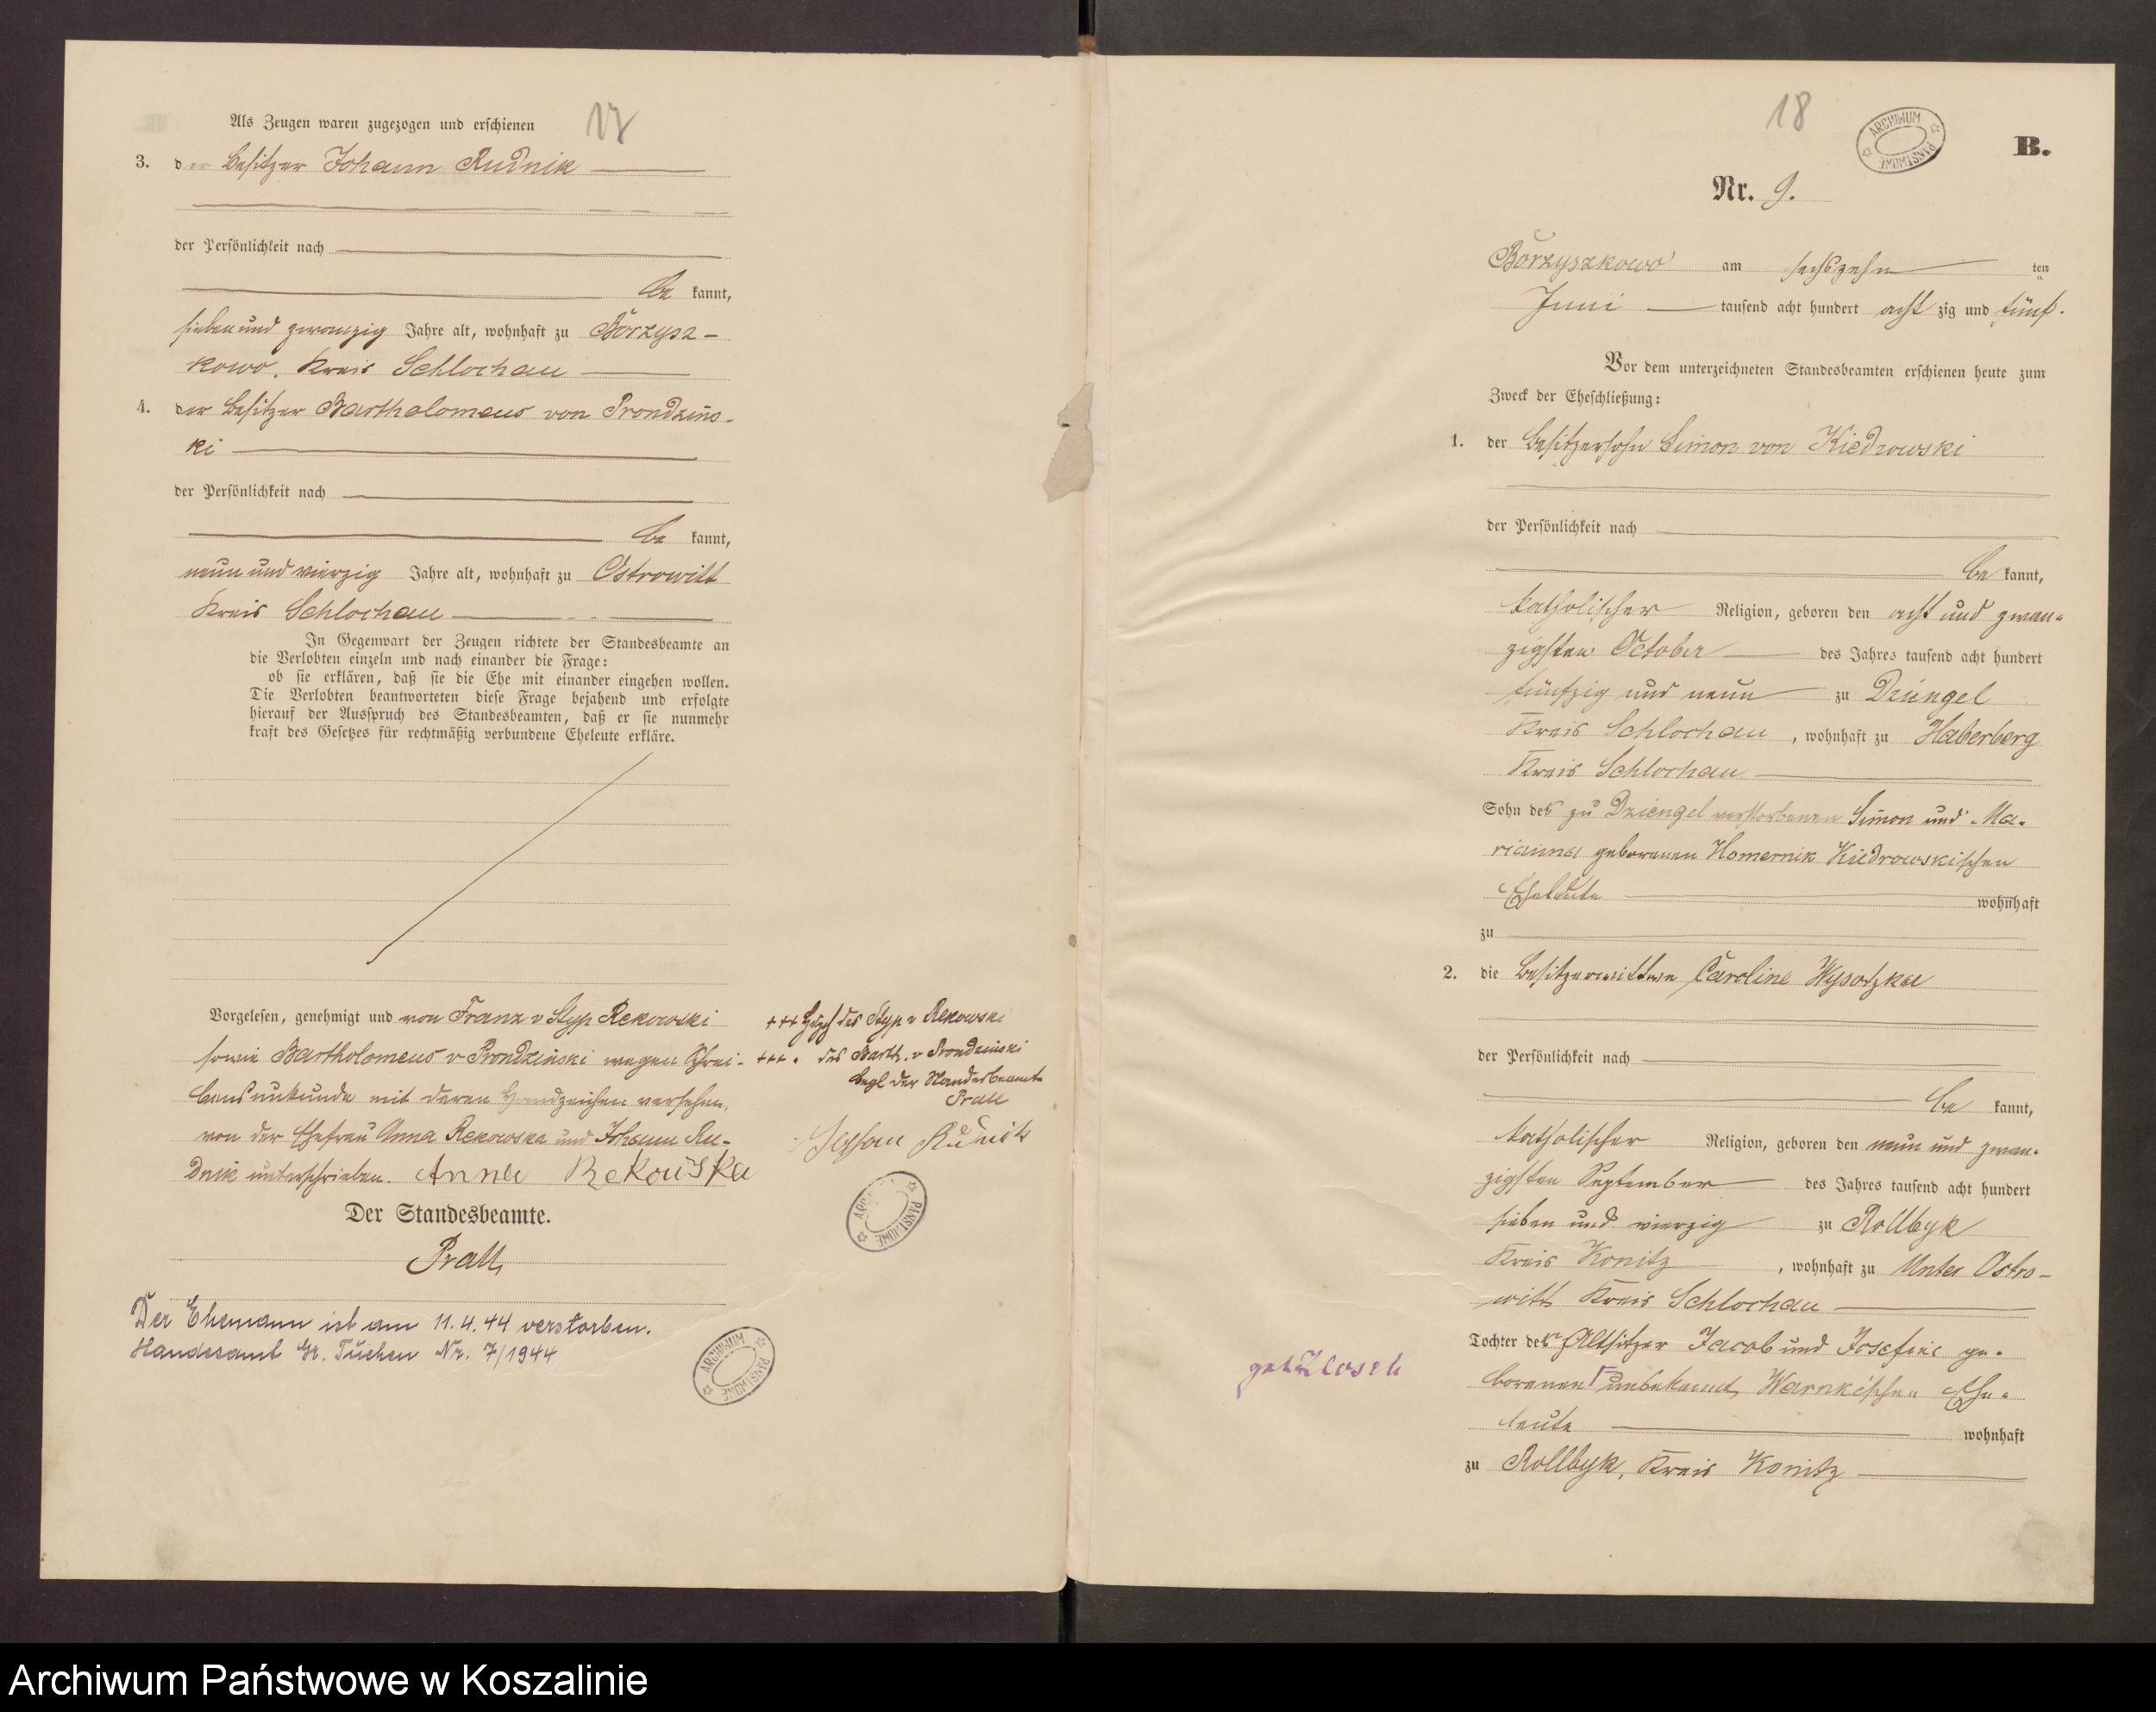 Als Zeugen waren zugezogen und erschienen
17
3. der Besitzer Johann Rudnik
der Persönlichkeit nach
be kannt,
sieben und zwanzig Jahre alt, wohnhaft zu Borzysz-
kowo, Kreis Schlochau
4. der Besitzer Bartholomeus von Prondzins-
ki
der Persönlichkeit nach
be kannt,
neun und vierzig Jahre alt, wohnhaft zu Ostrowitt
Kreis Schlochau
In Gegenwart der Zeugen richtete der Standesbeamte an
die Verlobten einzeln und nach einander die Frage:
ob sie erklären, daß sie die Ehe mit einander eingehen wollen.
Die Verlobten beantworteten diese Frage bejahend und erfolgte
hierauf der Ausspruch des Standesbeamten, daß er sie nunmehr
kraft des Gesetzes für rechtmäßig verbundene Eheleute erkläre.
Vorgelesen, genehmigt und von Franz v Styp Rekowski
sowie Bartholomeus v Prondzinski wegen Schrei-
bensunkunde mit deren Handzeichen versehen,
von der Ehefrau Anna Rekowska und Johann Ru-
dnik unterschrieben. Anna Rekowska
+++ Hdzch des Styp v Rekowski
+++ " des Barth. v Prondzinski
begl der Standesbeamte
Prall
Johann Rudnik
ARCHIWUM PAŃSTWOWE
Der Standesbeamte.
Prall
Der Ehemann ist am 11.4.44 verstorben.
Standesamt Gr. Tuchen Nr. 7/1944
ARCHIWUM PAŃSTWOWE
18
ARCHIWUM PAŃSTWOWE
B.
Nr. 9.
Borzyszkowo am sechszehn ten
Juni tausend acht hundert acht zig und fünf.
Vor dem unterzeichneten Standesbeamten erschienen heute zum
Zweck der Eheschließung:
1. der Besitzersohn Simon von Kiedrowski
der Persönlichkeit nach
be kannt,
katholischer Religion, geboren den acht und zwan-
zigsten October des Jahres tausend acht hundert
fünfzig und neun zu Dziengel
Kreis Schlochau, wohnhaft zu Haberberg
Kreis Schlochau
Sohn der zu Dziengel verstorbenen Simon und Ma-
rianna geborenen Komernik Kiedrowskischen
Eheleute wohnhaft
zu
2. die Besitzerwittwe Caroline Wysotzka
der Persönlichkeit nach
be kannt,
katholischer Religion, geboren den neun und zwan-
zigsten September des Jahres tausend acht hundert
sieben und vierzig zu Rollbyk
Kreis Konitz, wohnhaft zu Unter Ostro-
witt Kreis Schlochau
Tochter der Altsitzer Jacob und Josefine ge-
borenen unbekannt, Warnkeschen Ehe-
leute wohnhaft
zu Rollbyk, Kreis Konitz
Archiwum Państwowe w Koszalinie